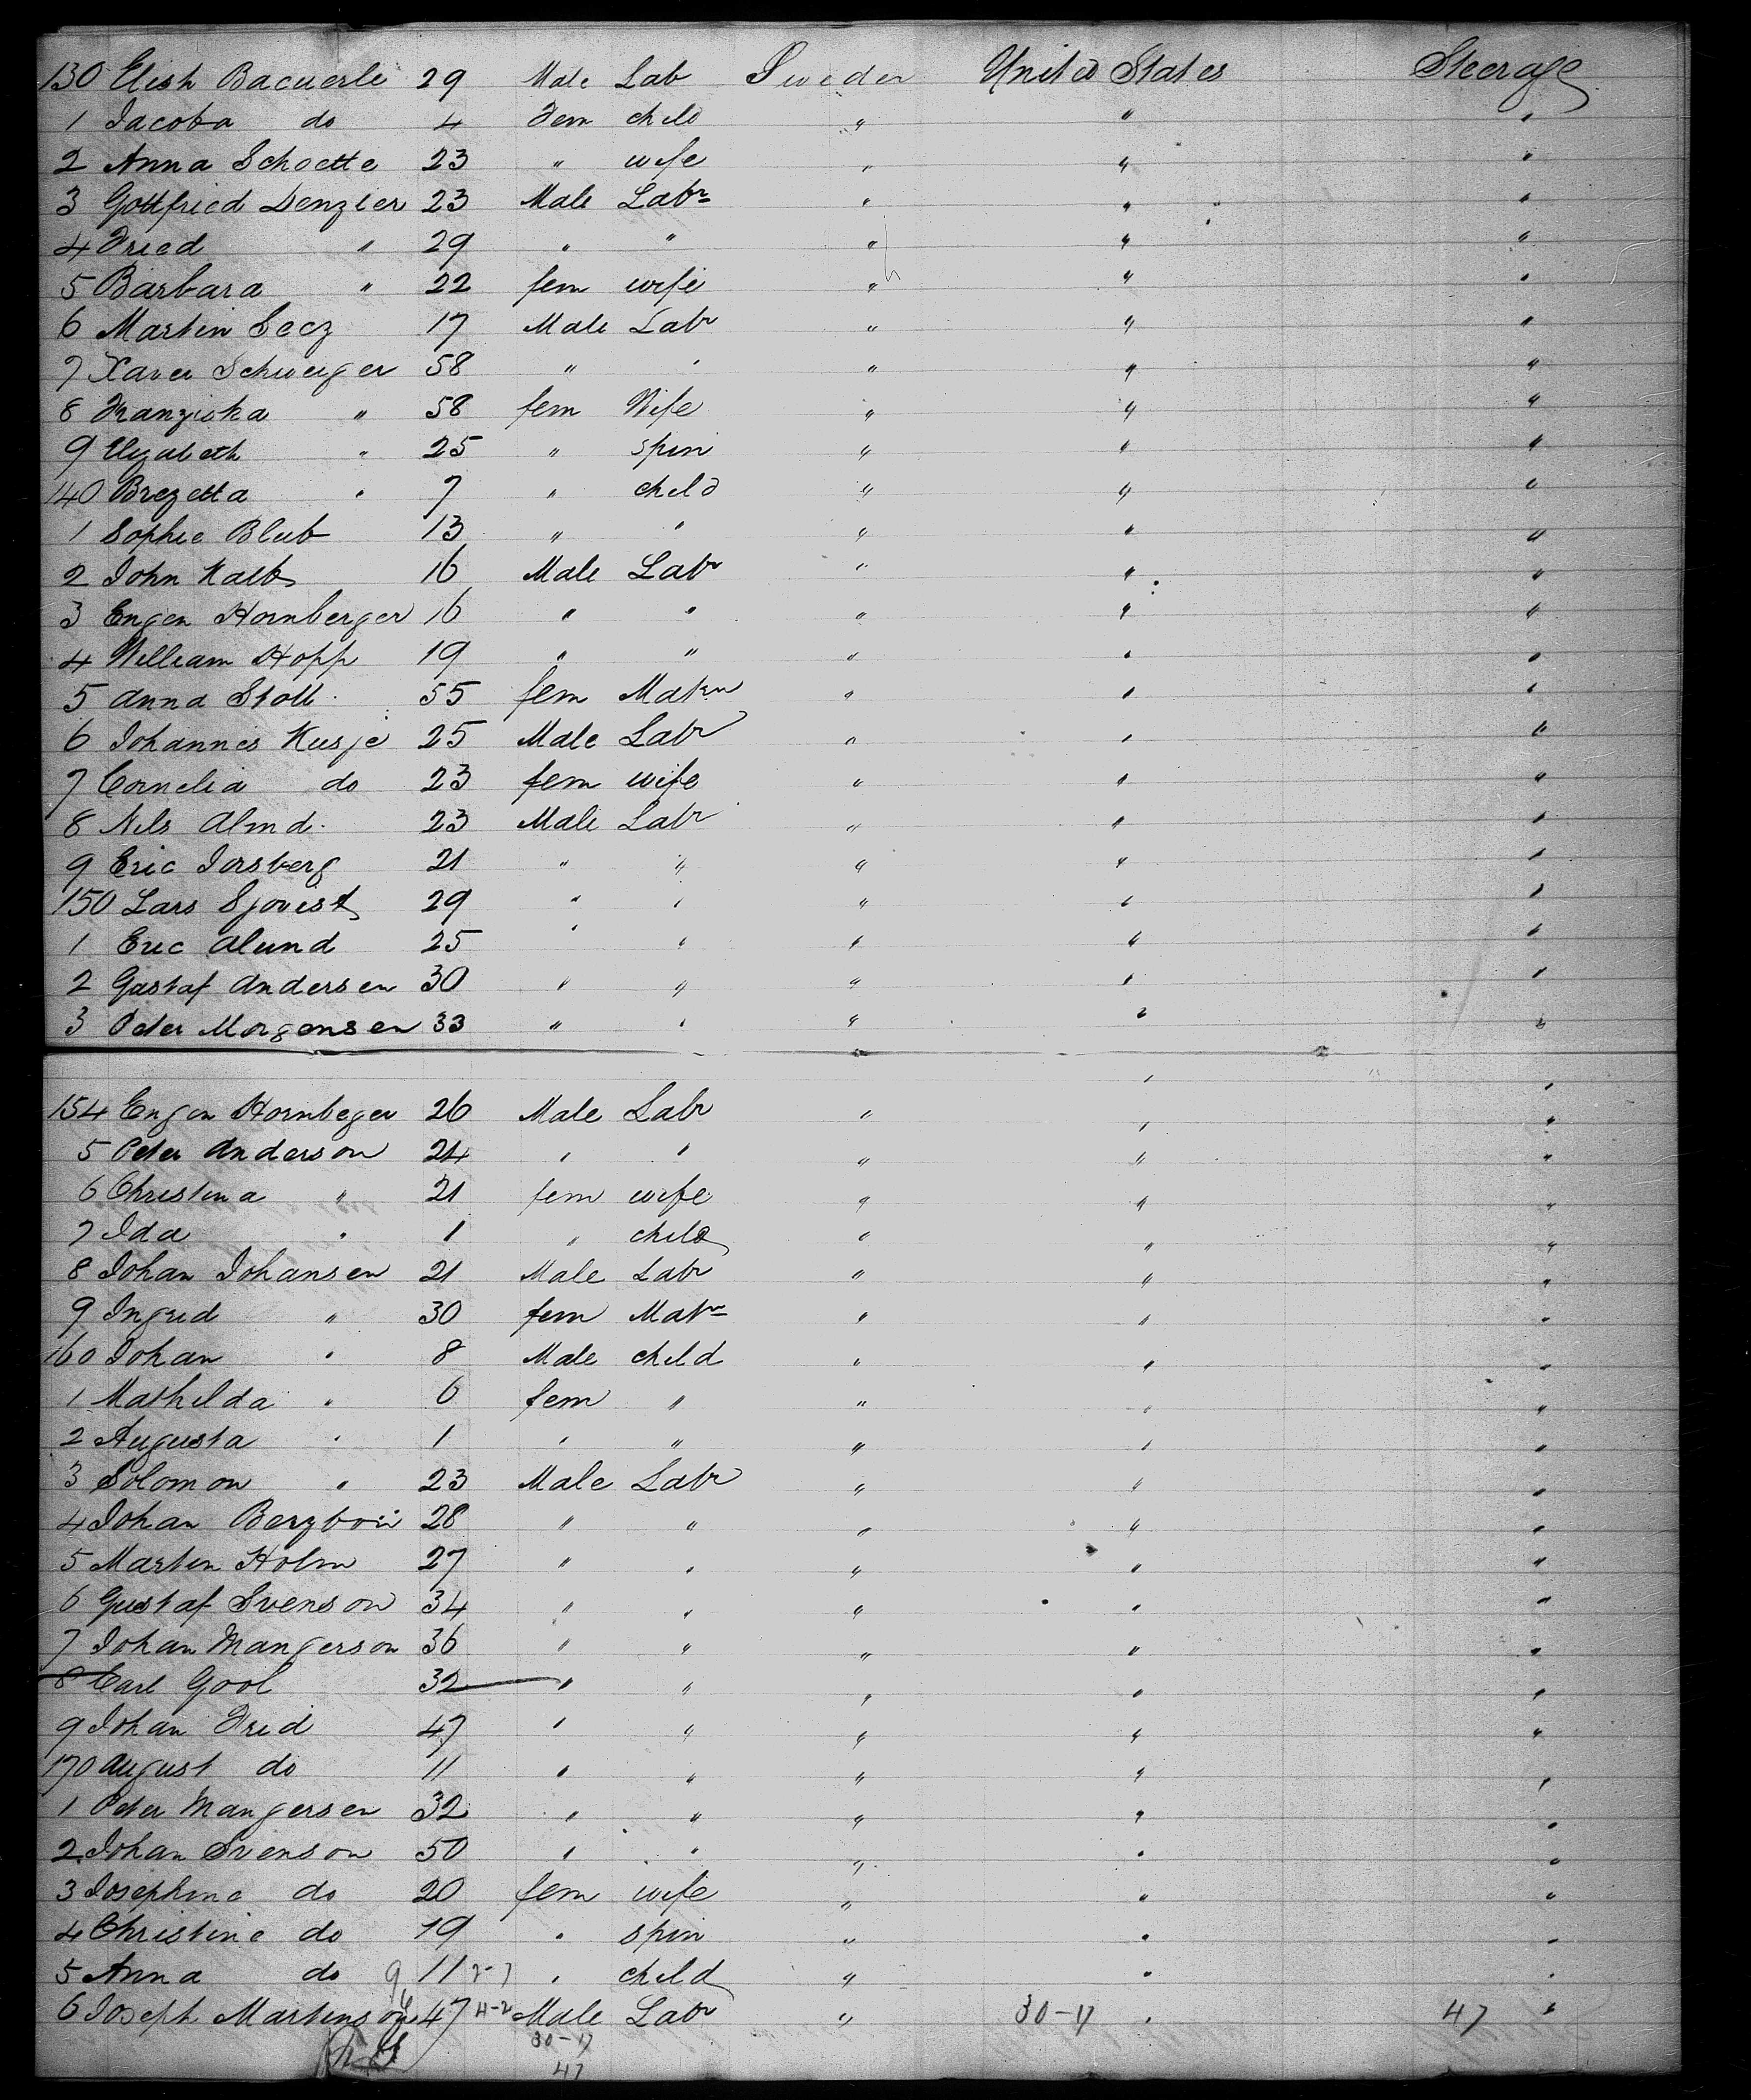 130 Elish Bacuerle 29 Male Lab Sweden United States Steerage
1 Jacoba do 4 Fem child " " "
2 Anna Schoette 23 " wife " " "
3 Gottfried Denzler 23 Male Labr " " "
4 Fried " 29 " " " " "
5 Barbara " 22 fem wife " " "
6 Martin Secz 17 Male Labr " " "
7 Xaver Schweiger 58 " " " " "
8 Franziska " 58 fem Wife " " "
9 Elizabeth " 25 " spin " " "
140 Brezetta " 7 " child " " "
1 Sophie Blub 13 " " " " "
2 John Kalb 16 Male Labr " " "
3 Engen Hornberger 16 " " " " "
4 William Hopp 19 " " " " "
5 Anna Stoll 55 fem Matrn " " "
6 Johannes Kusje 25 Male Labr " " "
7 Cornelia do 23 fem wife " " "
8 Nils Almd. 23 Male Labr " " "
9 Eric Forsberg 21 " " " " "
150 Lars Sjovist 29 " " " " "
1 Eric Alund 25 " " " " "
2 Gustaf Andersen 30 " " " " "
3 Peter Morgensen 33 " " " " "
154 Engen Hornbeger 26 Male Labr " " "
5 Peter Anderson 24 " " " " "
6 Christina " 21 fem wife " " "
7 Ida " 1 " child " " "
8 Johan Johansen 21 Male Labr " " "
9 Ingrid " 30 fem Matrn " " "
160 Johan " 8 Male child " " "
1 Mathilda " 6 fem " " " "
2 Augusta " 1 " " " " "
3 Solomon " 23 Male Labr " " "
4 Johan 28 " " " " "
5 Marten Holm 27 " " " " "
6 Gustaf Svenson 34 " " " " "
7 Johan Mangerson 36 " " " " "
8 Carl Gool 32 " " " " "
9 Johan Frid 47 " " " " "
170 August do 11 " " " " "
1 Peter Mangersen 32 " " " " "
2 Johan Svenson 50 " " " " "
3 Josephine do 20 fem wife " " "
4 Christine do 19 " spin " " "
5 Anna do 11 " child " " "
6 Joseph Martenson 47 4-2 Male Labr " 30-17 " 47 "
30-17
47